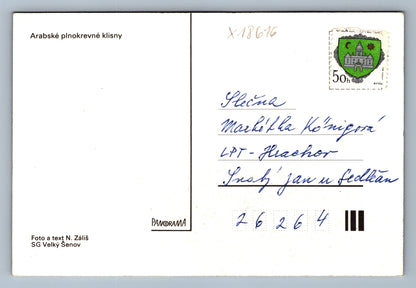 Arabské plnokrevné klisny
X 18616
50h
Slečna
Markétka Königová
LPT - Hrachov
Svatý Jan u Sedlčan
26264
PANORAMA
Foto a text N. Záliš
SG Velký Šenov